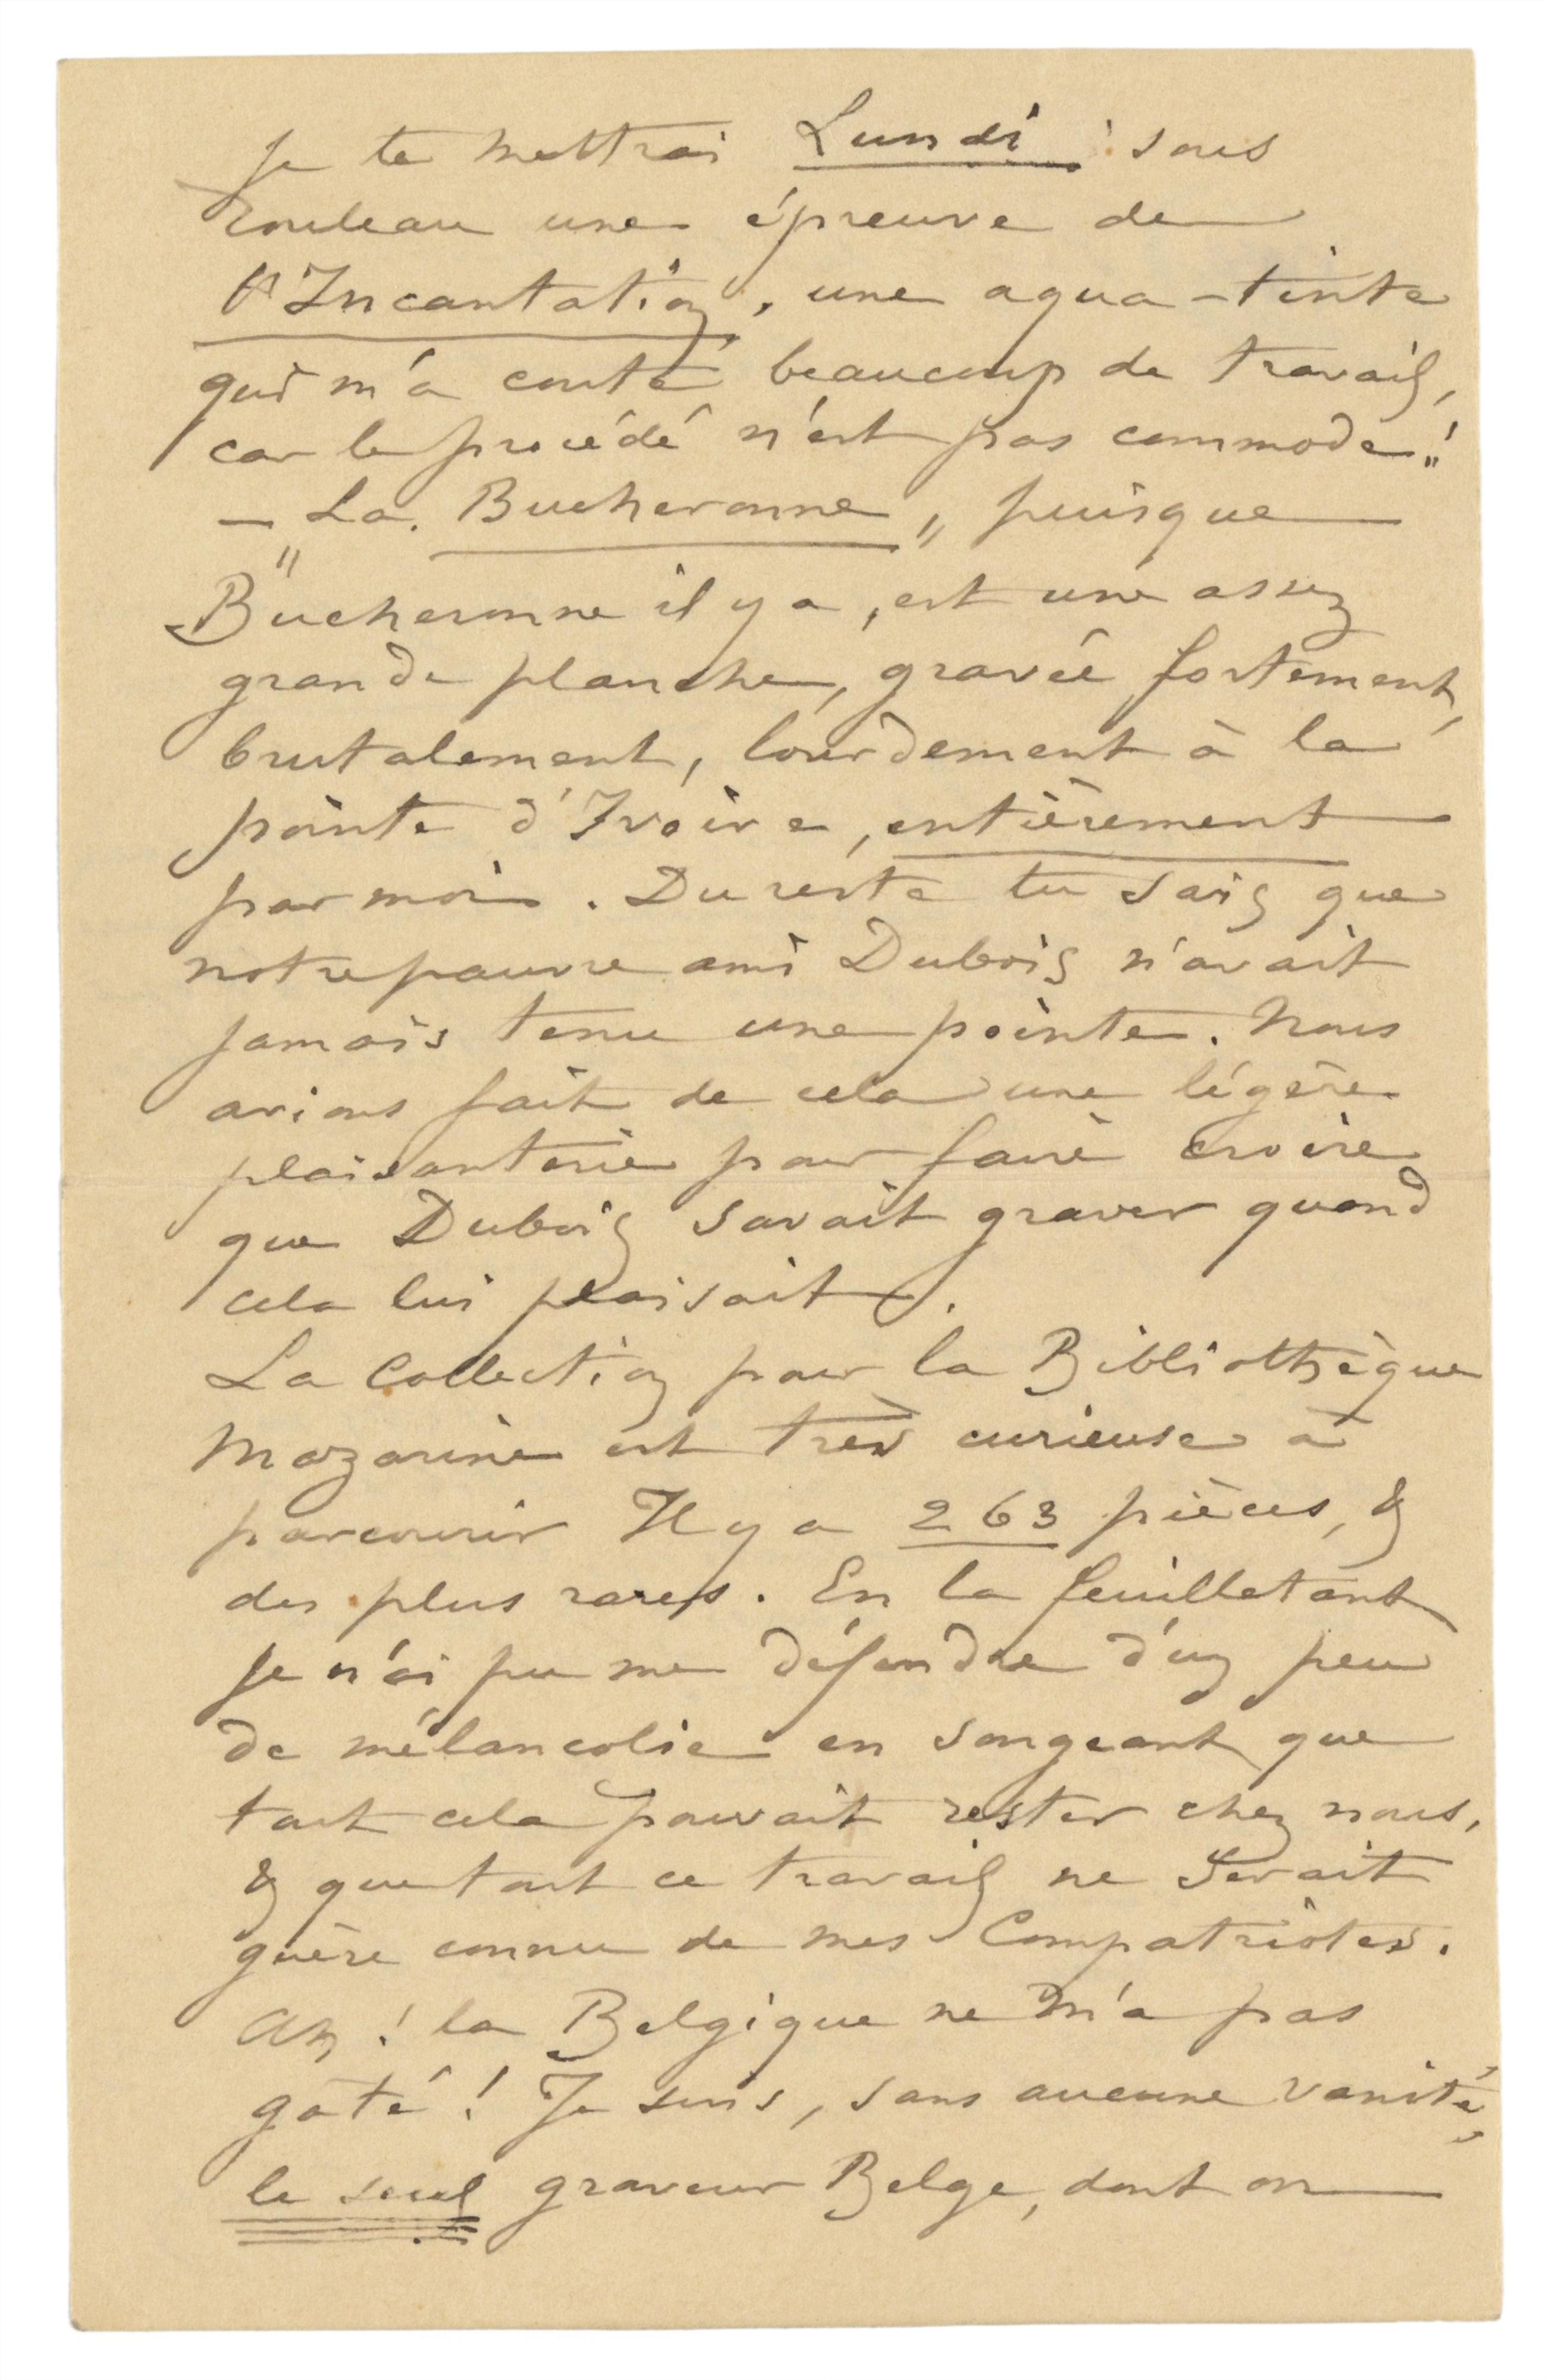 Je te mettrai Lundi sous
rouleau une épreuve de
l'Incantation, une aqua-tinte
qui m'a couté beaucoup de travail,
car le procédé n'est pas commode!
— "La Bucheronne" puisque
Bucheronne il y a, est une assez
grande planche, gravée fortement,
brutalement, lourdement à la
pointe d'Ivoire, entièrement
par moi. Du reste tu sais que
notre pauvre ami Dubois n'avait
jamais tenu une pointe. Nous
avions fait de cela une légère
plaisanterie pour faire croire
que Dubois savait graver quand
cela lui plaisait.
La Collection pour la Bibliothèque
Mazarine est très curieuse à
parcourir Il y a 263 pièces, &
des plus rares. En la feuilletant
je n'ai pu me défendre d'un peu
de mélancolie en songeant que
tout cela pouvait rester chez nous,
& que tout ce travail ne serait
guère connu de mes Compatriotes.
Ah! la Belgique ne m'a pas
gâté! Je suis, sans aucune vanité,
le seul graveur Belge, dont on